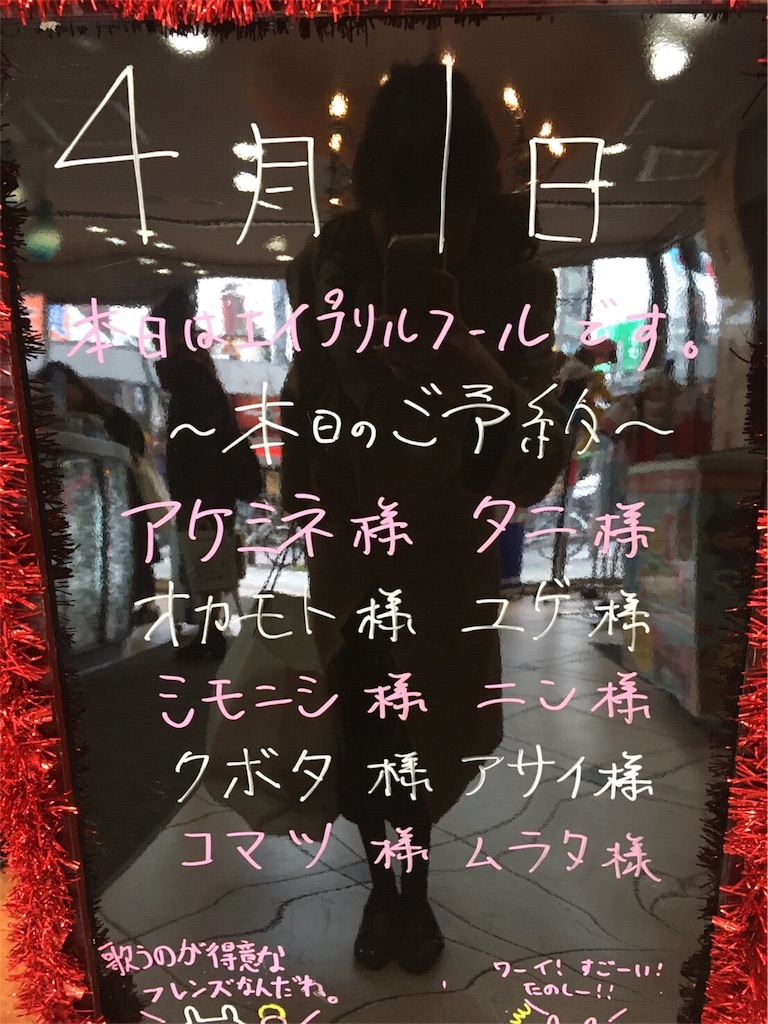 4月1日
本日はエイプリルフールです。
～本日のご予約～
アケミネ様 タニ様
オカモト様 ユゲ様
シモニシ様 ニン様
クボタ様 アサイ様
コマツ様 ムラタ様
歌うのが得意な
フレンズなんだね。
ワーイ!すごーい!
たのしー!!